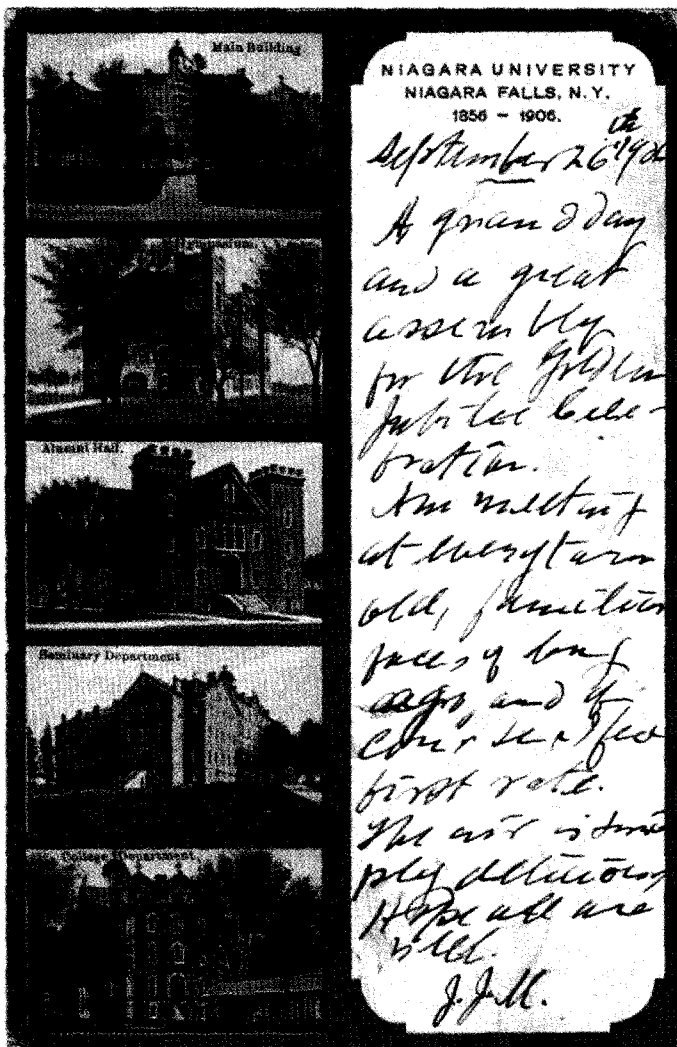 Main Building
Gymnasium.
Alumni Hall.
Seminary Department
College Department
NIAGARA UNIVERSITY
NIAGARA FALLS, N.Y.
1856 – 1906.
September 26th 1906
A grand day
and a great
assembly
for the Golden
Jubilee Cele-
bration.
Am meeting
at every turn
old, familiar
faces of long
ago, and of
course feel
first rate.
The air is sim-
ply delicious,
Hope all are
well.
J.J.M.